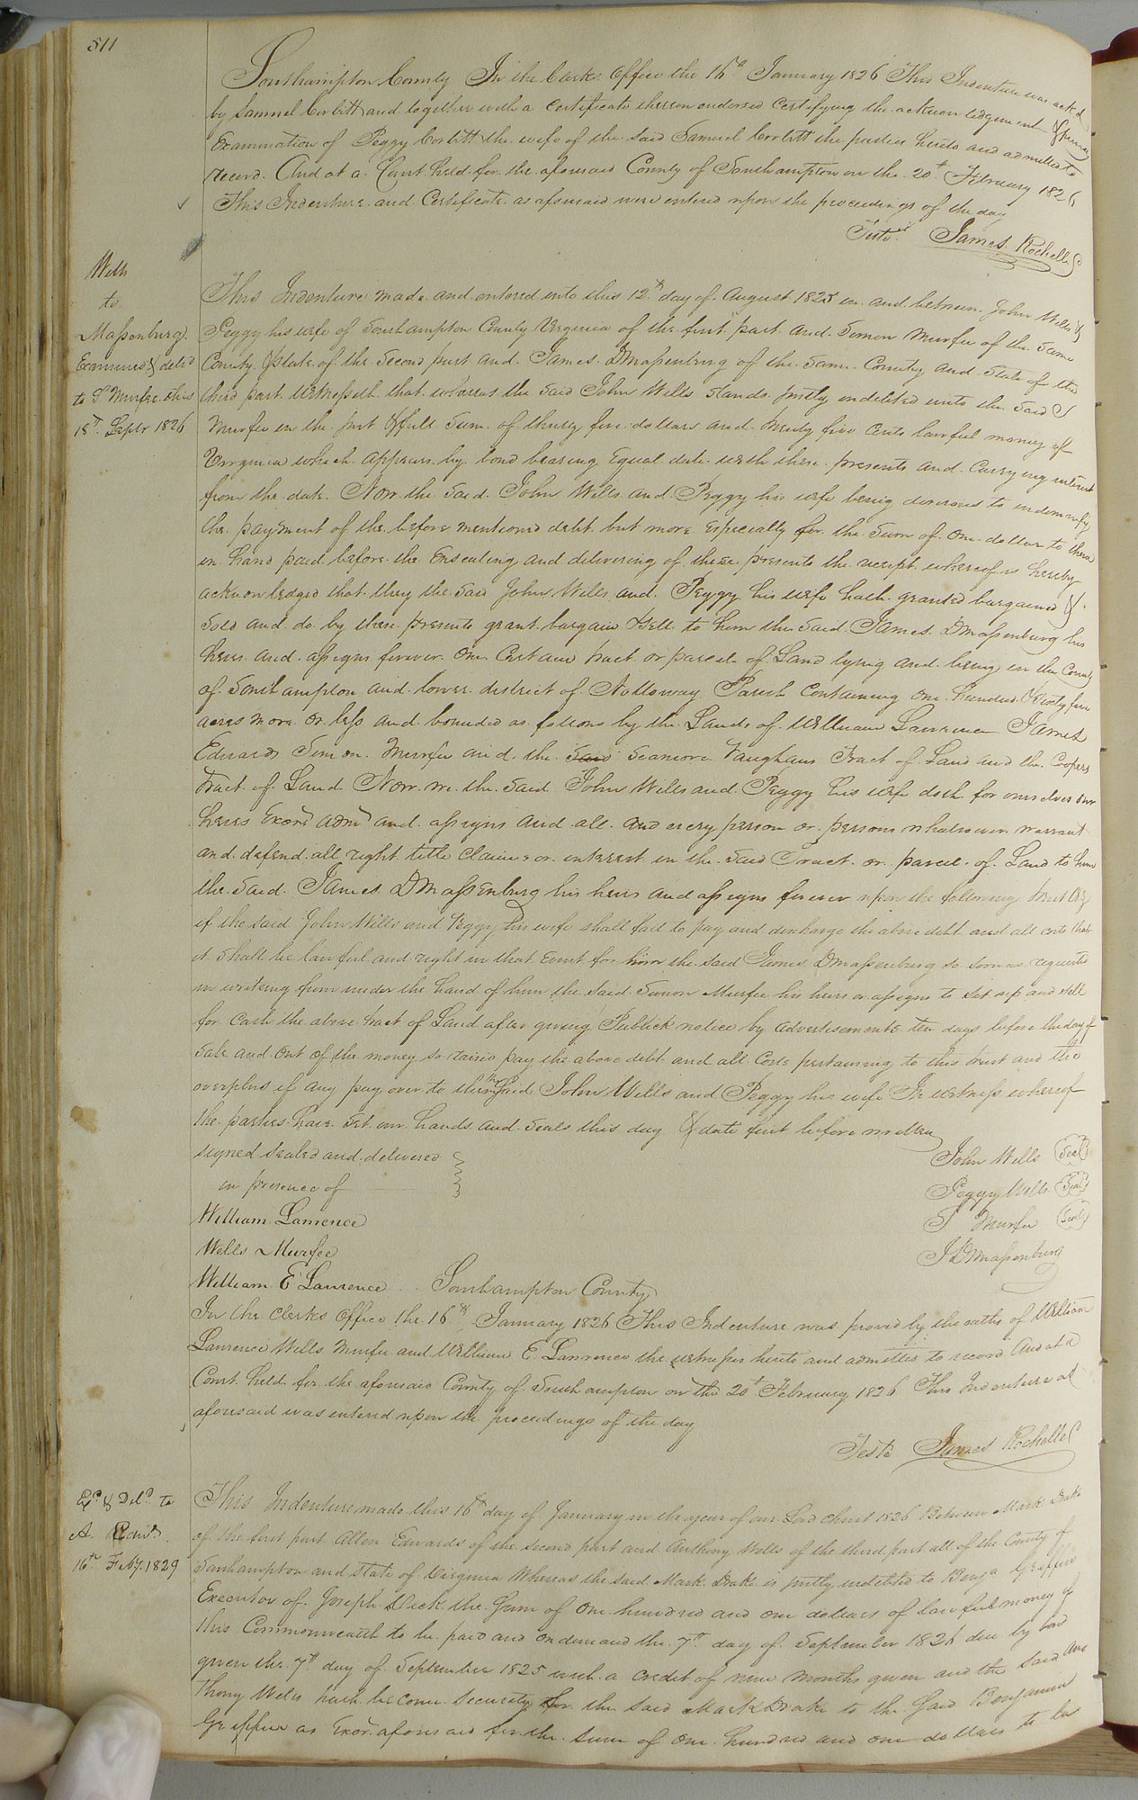 511
Southampton County In the Clerks Office the 16th January 1826 This Indenture was ackd
by Samuel Corbitt and together with a Certificate thereon endorsed Certifying the acknowledgement &
Examination of Peggy Corbitt the wife of the said Samuel Corbitt the parties hereto and admitted to
record. And at a Court held for the aforesaid County of Southampton on the 20t February 1826
This Indenture and Certificate as aforesaid were entered upon the proceedings of the day
Teste James Rochelle C
Wills
to
Massenburg
Examined & deld
to S Murfee this
18th Septr 1826
This Indenture made and entered into this 12th day of August 1825 in and between John Wills &
Peggy his wife of Southampton County Virginia of the first part and Simon Murfee of the same
County & State of the Second part and James D Massenburg of the Same County and State of the
third part Witnesseth that whereas the said John Wills Stands justly indebted unto the Said S
Murfee in the just & full Sum of thirty five dollars and twenty five Cents lawful money of
Virginia which appears by bond bearing Equal date with these presents and Carrying interest
from the date. Now the Said John Wills and Peggy his wife being desirous to indemnify
the payment of the before mentioned debt but more Especially for the Sum of One dollar to them
in hand paid before the Ensealing and delivering of these presents the receipt whereof is hereby
acknowledged that they the Said John Wills and Peggy his wife hath granted bargained &
Sold and do by these presents grant bargain & Sell to him the Said James D Massenburg his
heirs and assigns forever One Certain tract or parcel of Land lying and being in the County
of Southampton and lower district of Nottoway Parish Containing One hundred & Sixty five
acres more or less and bounded as follows by the Lands of William Lawrence James
Edwards Simon Murfee and the Said Seamore Vaughans Tract of Land and the Copers
Tract of Land Now we the Said John Wills and Peggy his wife doth for ourselves our
heirs Exors Adms and assigns and all and every person or persons whatsoever warrant
and defend all right title Claims or interest in the Said Tract or parcel of Land to him
the Said James D Massenburg his heirs and assigns forever upon the following trust
if the said John Wills and Peggy his wife shall fail to pay and discharge the above debt and all costs that
it shall be lawful and right in that Event for him the said James D Massenburg so soon as requested
in writing from under the hand of him the said Simon Murfee his heirs or assigns to set up and sell
for Cash the above tract of Land after giving Publick notice by advertisements ten days before the day of
Sale and Out of the money so raisd pay the above debt and all Costs pertaining to this trust and the
overplus if any pay over to them the Said John Wills and Peggy his wife In witness whereof
the parties have Set our hands and Seals this day & date first before written
signed Sealed and delivered
in presence of
John Wills Seal
Peggy Wills Seal
S Murfee Seal
J D Massenburg
William Lawrence
Wells Murfee
William E Lawrence
Southampton County
In the Clerks Office the 16th January 1826 This Indenture was proved by the oaths of William
Lawrence Wills Murfee and William E Lawrence the witnesses hereto and admitted to record And at a
Court held for the aforesaid County of Southampton on the 20t February 1826 This Indenture as
aforesaid was entered upon the proceedings of the day
Teste James Rochelle C
Exd & Deld to
A. Edwds
16th Feby 1829
This Indenture made this 16th day of January in the year of our Lord Christ 1826 Between Mark Drake
of the first part Allen Edwards of the Second part and Anthony Wells of the third part all of the County of
Southampton and State of Virginia Whereas the said Mark Drake is justly indebted to Benja Griffin
Executor of Joseph Dick the Sum of One hundred and one dollars of lawful money of
this Commonwealth to be paid and on demand the 7th day of September 1826 due by bond
given the 7th day of September 1825 with a credit of nine months given and the Said An
thony Wells hath become Security for the Said Mark Drake to the Said Benjamin
Griffin as Exor aforesaid for the Sum of One hundred and one dollars to be